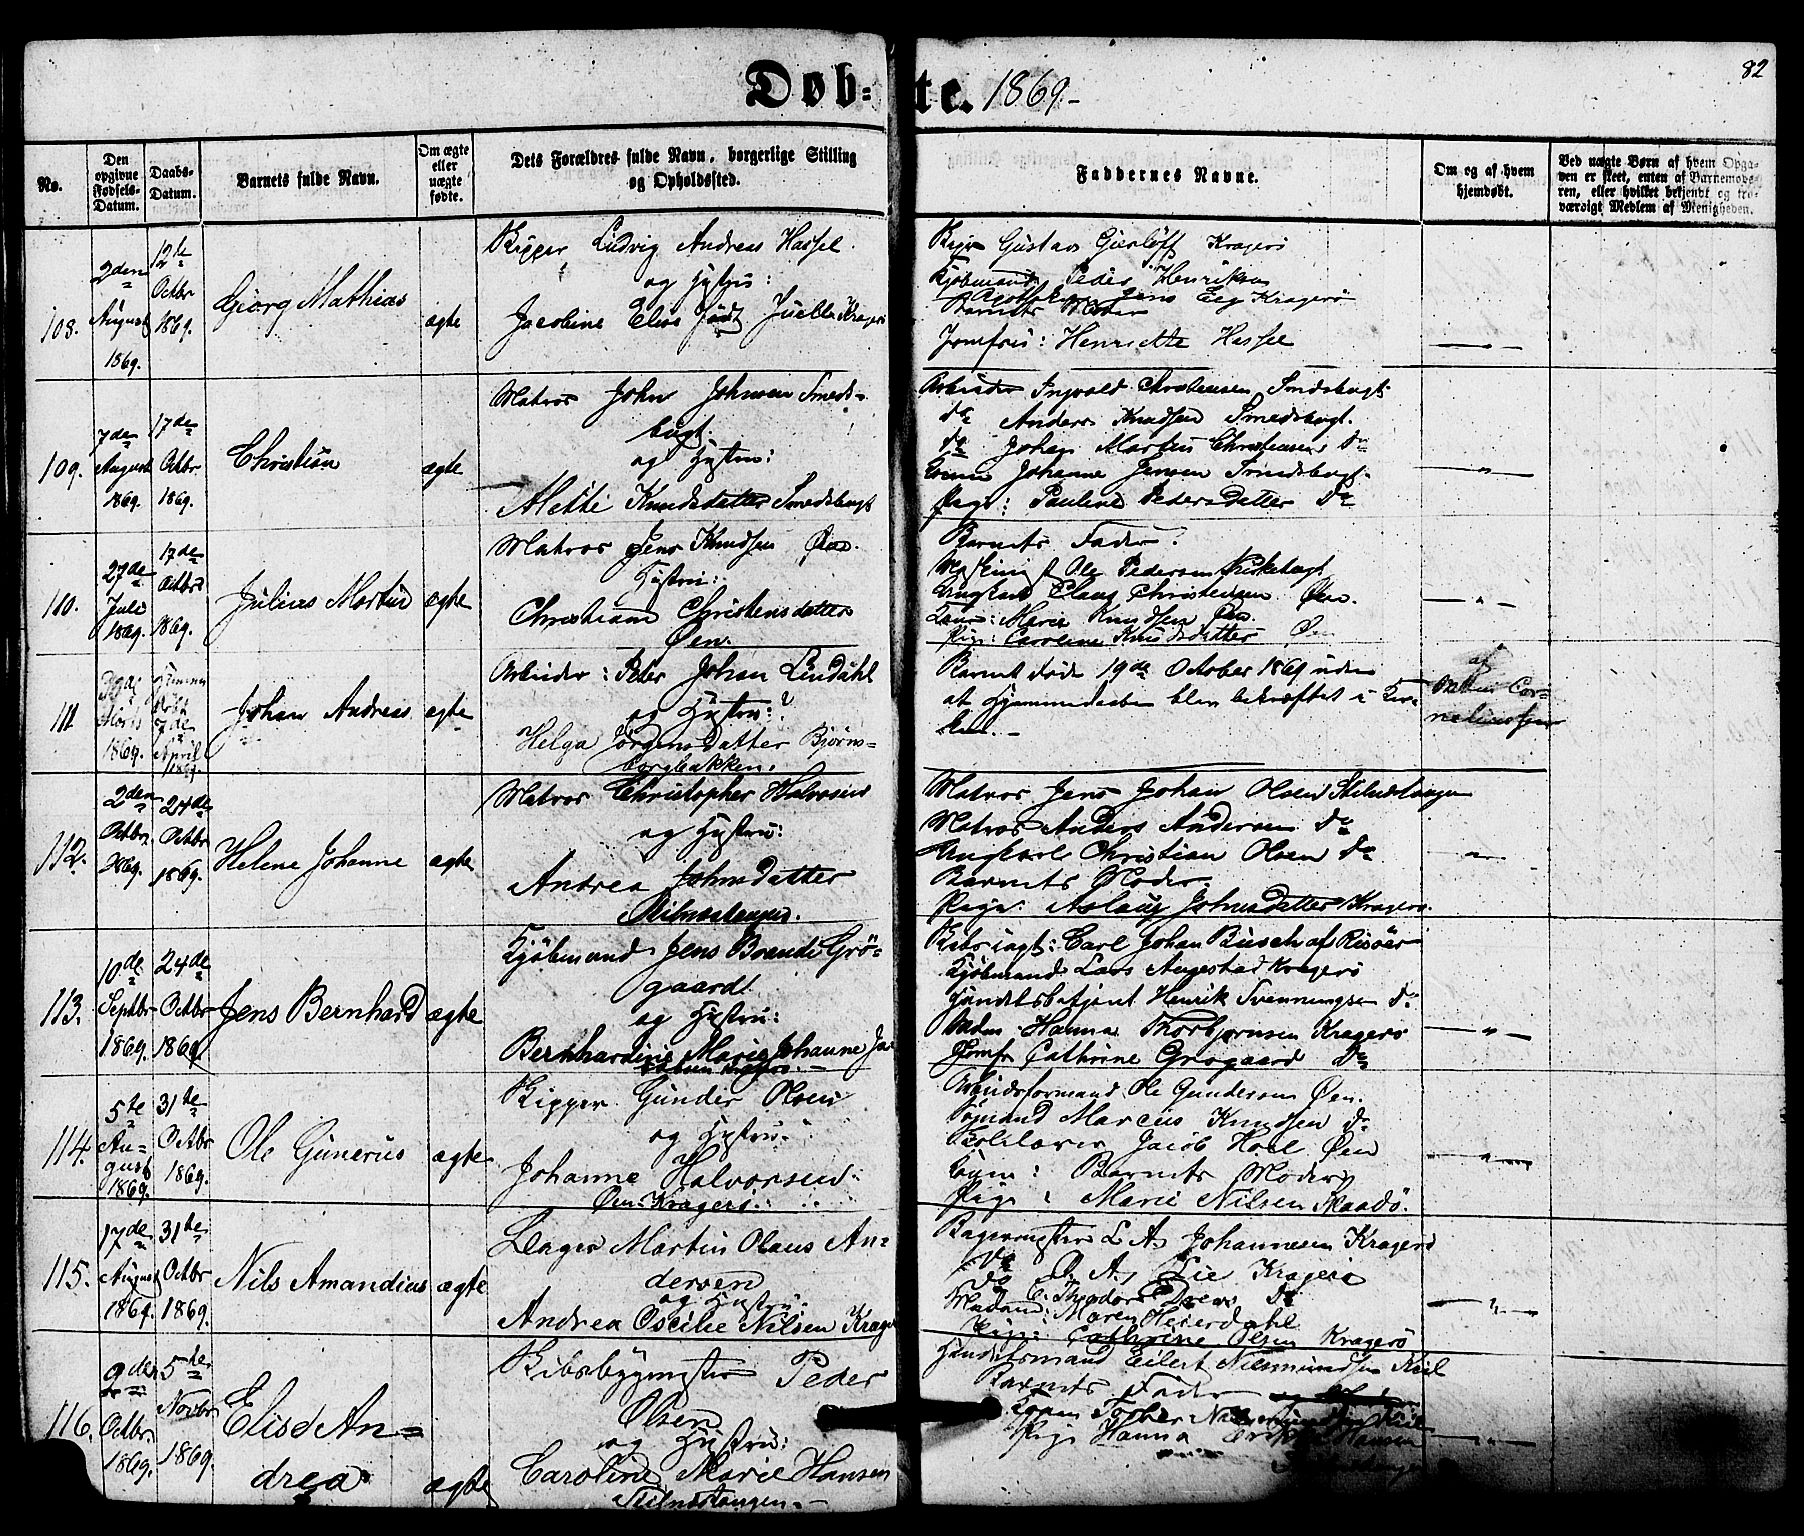 82
Døb= te. 1869.-
No.
Den opgivne Fødsels-Datum.
Daabs-Datum.
Barnets fulde Navn.
Om ægte eller uægte fødte.
Dets Forældres fulde Navn, borgerlige Stilling og Opholdssted.
Faddernes Navne.
Om og af hvem hjemdøbt.
Ved uægte Børn af hvem Opgaven er skeet, enten af Barnemoderen, eller hvilket bekjendt og troværdigt Medlem af Menigheden.
108.
2den
August
1869.
12te
Octbr
1869.
Georg Mathias
ægte
Ludvig Andreas Hassel
og Hustru:
Jacobine Elise født Juell Kragerø
Gustav Kragerø
Kjøbmand Peder Henriksen
Jens Kragerø
Barnets Moder
Jomfru: Henriette Hassel
109.
7de
August
1869.
17de
Octbr
1869.
Christian
ægte
Matros John Johnsen Smeds-
bugt.
og Hustru:
Alette Knudsdatter Smedsbugt
Arbeider Ingvald Christensen Smedsbugt
do Anders Knudsen Smedsbugt.
do Johan Martin Christensen do
Kone Johanne Jensen Smedsbugt.
Pige: Pauline Pedersdatter do
110.
27de
Juli
1869.
17de
Octbr
1869.
Julius Martin
ægte
Matros Jens Knudsen Øen.
Hustru:
Christiane Christensdatter
Øen.
Barnets Fader.
Ole Pedersen
Ungkarl Claus Christensen Øen.
Kone: Marie Knudsen Øen.
Pige: Caroline Knudsdatter Øen
111
Marts
1869.
7de
April
1869.
Johan Andreas
ægte
Arbeider: Peter Johan Lindahl
og Hustru:
Helga Jørgensdatter Bjørns-
borgbakken.
Barnet døde 19de October 1869 uden
at Hjemmedaaben blev bekræftet i Kir-
ken.-
af
Cor-
neliussen
112.
2den
Octbr.
1869.
24de
Octbr
1869.
Helene Johanne
ægte
Matros Christopher Halvorsen
og Hustru:
Andrea Johnsdatter
Stilnestangen.
Matros Jens Johan Olsen Stilnestangen
Matros Anders Andersen do
Ungkarl Christian Olsen do
Barnets Moder.
Pige. Aslaug Johnsdatter Kragerø.
113.
10de
Septbr
1869.
24de
Octbr
1869.
Jens Bernhard
ægte
Kjøbmand Jens Brandt Grø-
gaard
og Hustru:
Bernhardine Marie Johanne
Kragerø.-
Carl Johan Busch af Risøer
Kjøbmand Lars Angestad Kragerø
Handelsbetjent Henrik Svenningsen do
Madm. Hanna Thorbjørnsen Kragerø
Jomfr Cathrine Grøgaard do
114.
5te
Au-
gust
1869.
31te
Octbr
1869.
Ole Gunerius
ægte
Gunder Olsen
og Hustru:
Johanne Halvorsen
Øen Kragerø.
Ole Gundersen Øen.
Marcus Knudsen do
Jacob Øen
Kone: Barnets Moder
Pige: Marie Nilsen Skaadø.
115.
17de
August
1869.
31te
Octbr
1869.
Nils Amandius
ægte
Bager Martin Olaus An-
dersen
og Hustru:
Andrea Oscilie Nilsen Krage
Bagermester L. A. Johannesen Kragerø
do A. Lie Kragerø
do C. Theodor Drews do
Madam: Maren Heierdahl
Pige: Cathrine Olsen Kragerø
116.
9de
Octbr.
1869.
5te
Novbr
1869.
Elise An=
drea
ægte
Skibsbygmester Peder
Olsen
og Hustru:
Caroline Marie Hansen
Stilnestangen.-
Eilert Kiil
Barnets Fader
Pige Hanna Hansen